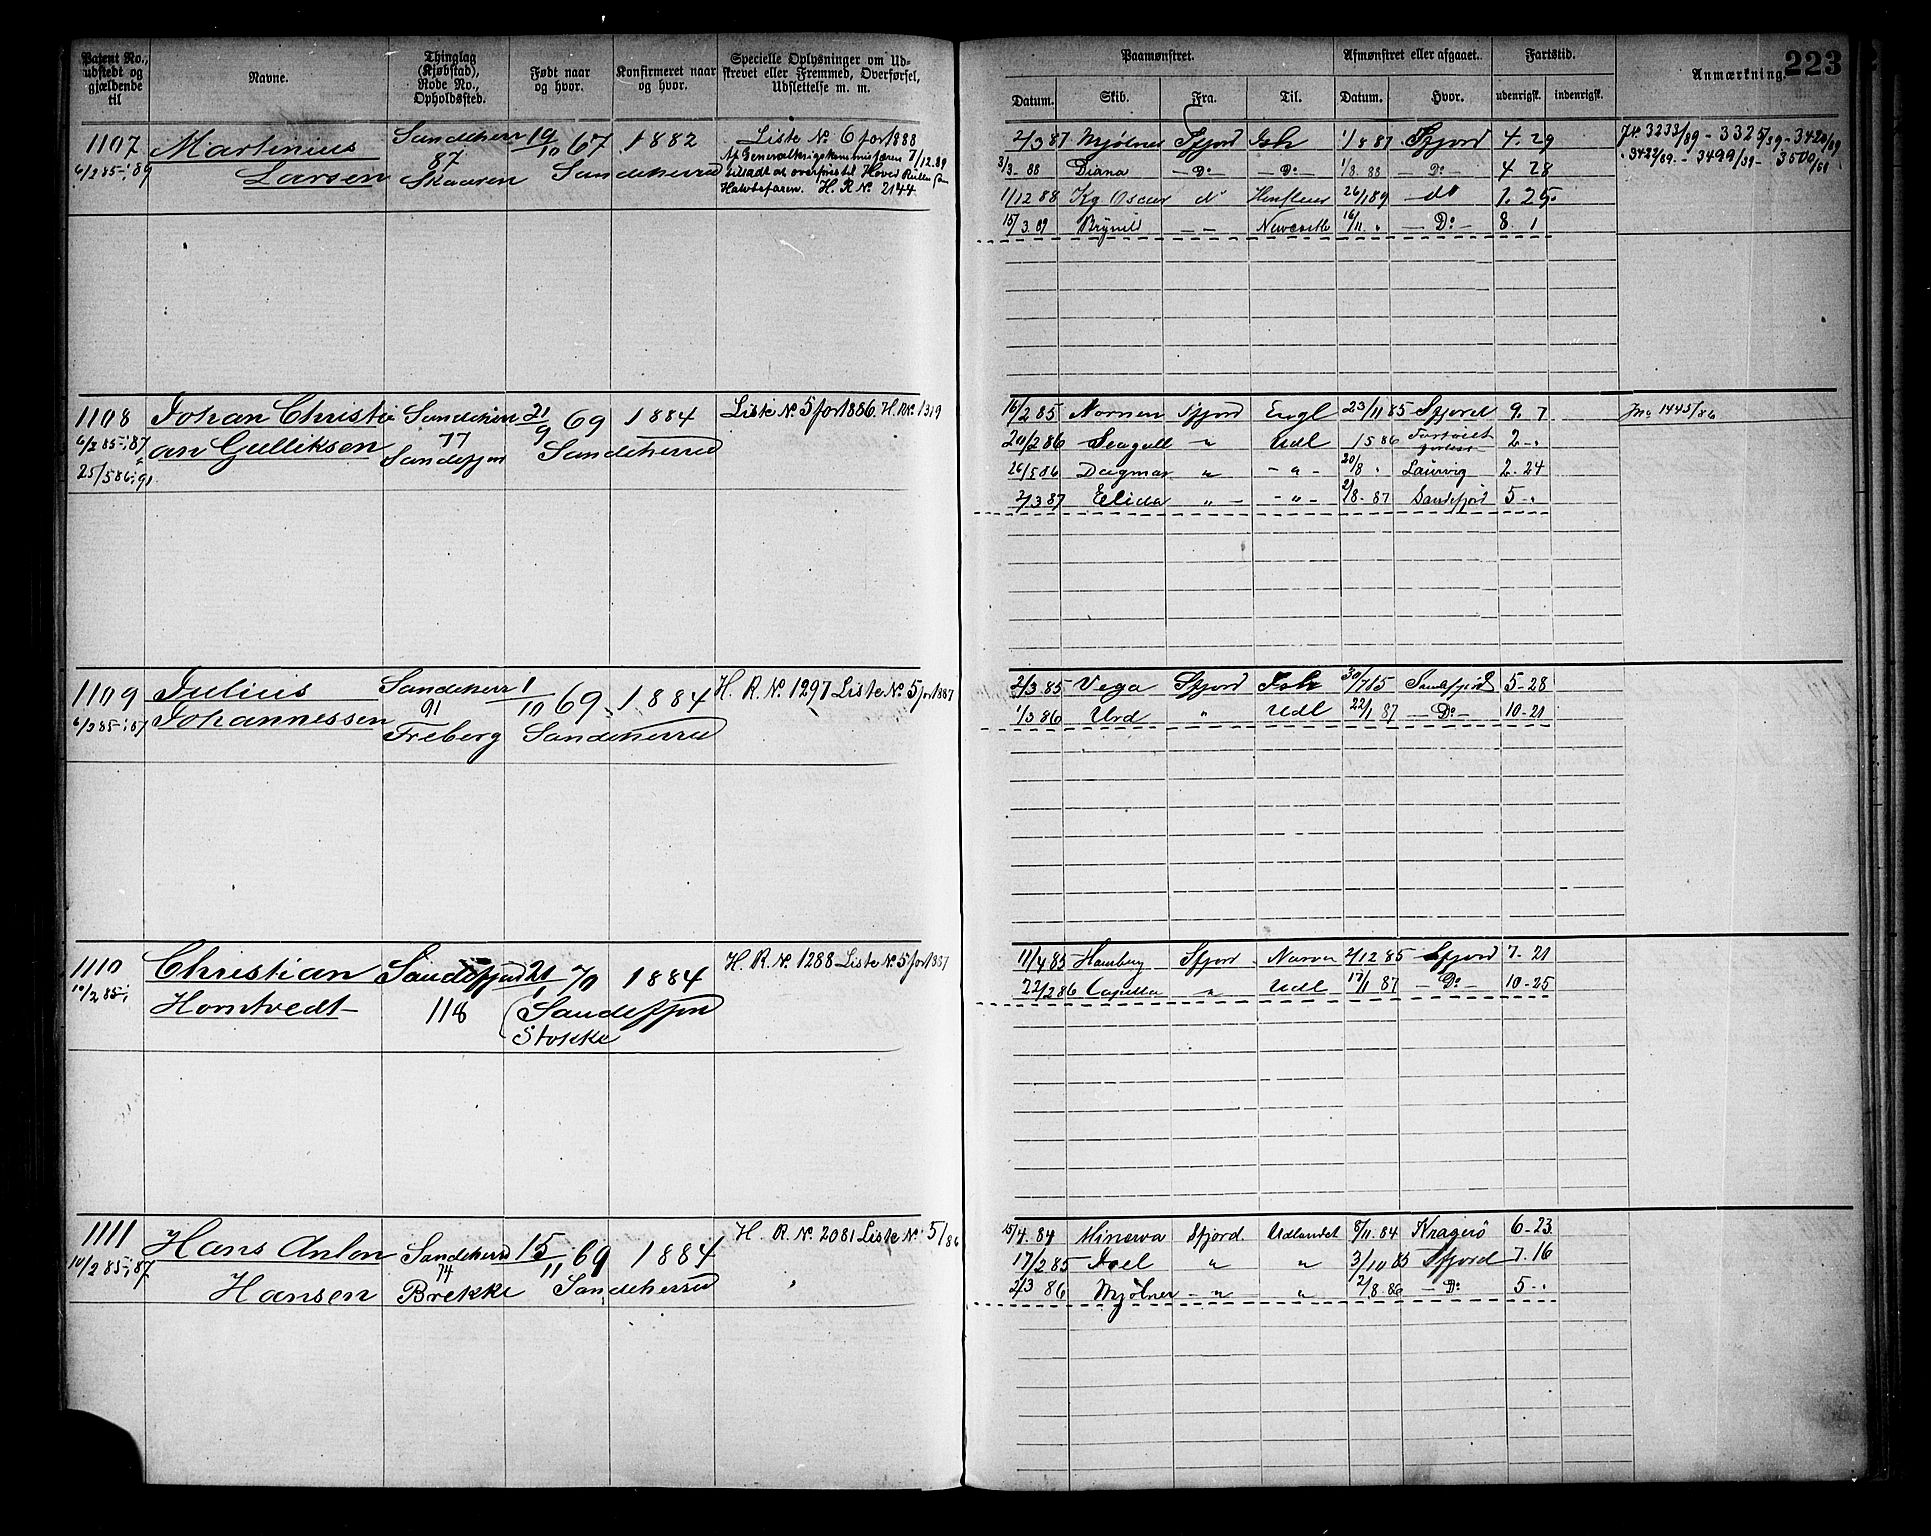 Patent No., udstedt og gjældende til
Navne.
Thinglag (Kjøbstad), Rode No., Opholdssted.
Født naar og hvor.
Konfirmeret naar og hvor.
Specielle Oplysninger om Udskrevet eller Fremmed, Overførsel, Udslettelse m. m.
Paamønstret.
Afmønstret eller afgaaet.
Fartstid.
Anmærkning.
223
Datum. Skib. Fra. Til. Datum. Hvor. udenrigsk. indenrigsk.
1107 Martinius Sandeherr 19/10 67 1882 Liste No 6 for 1888
6/2 85-i/89 Larsen 87 Skaaren Sandeherred
Af Generalkrigskommissæren 7/12.89
tilladt at overføres til Hoved Rullen for
Halvbefaren. H. R No. 2144.
2/3 87 Mjølner Sfjord Ish 1/8 87 Sfjord 4.29
3/3 88 Diana - Do - - Do - 1/8 88 - Do - 4 28
1/12 88 Kg Oscar do 26/1 89 - do 1.25
15/3.89 Brynil - - Newcastle 16/11 " - Do - 8 1
3233/89 - 3325/89 - 3420/89
3422/89 - 3499/89 - 3500/89
1108 Johan Christi Sandeherr 21/9 69 1884 Liste No 5 for 1886. H. R No. 1319
6/2 85-i/87 an Gulliksen 77 Sandeherred
25/5 86-i 91 Sandefjord
16/2 85 Nornen Sfjord Engl 23/11 85 Sfjord 9. 7
20/2 86 Seagull " Udl 1 5 86 Fartøiet forlist 2 - "
26/5 86 Dagmar " - " - 20/8 " Laurvig 2. 24
2/3 87 Elida " - - " - 2/8 - 87 Sandefjord 5 - "
1445/86
1109 Julius Sandeherr 1/10 69 1884 H. R. No. 1297 Liste No 5 for 1887
6/2 85-i/87 Johannessen 91 Sandeherred
Freberg
2/3 85 Vega Sfjord Ish 30/7 15 Sandefjord 5-28
1/3 86 Urd " Udl 22/1 87 - Do - 10-21
1110 Christian Sandefjord 21/1 70 1884 H. R. No. 1288 Liste No 5 for 1887
10/2 85-i Homtvedt 118 (Sandefjord
Stokke
11/4 85 Hamburg Sfjord Narva 2/12 85 Sfjord 7. 21
22/2 86 Capella " Udl 17/1 87 - Do - 10-25
1111 Hans Anton Sandeherred 15/11 69 1884 H. R. No. 2081 Liste No 5/86
10/2 85-i/87 Hansen 74 Brekke Sandeherred "
15/4. 84 Minerva Sfjord Udlandet 8/11. 84 Kragerö 6-23
17/2 85 Joel " " 3/10 85 Sfjord 7.16
2/3 86 Mjölner - " " 2/8 86 - Do 5 - "